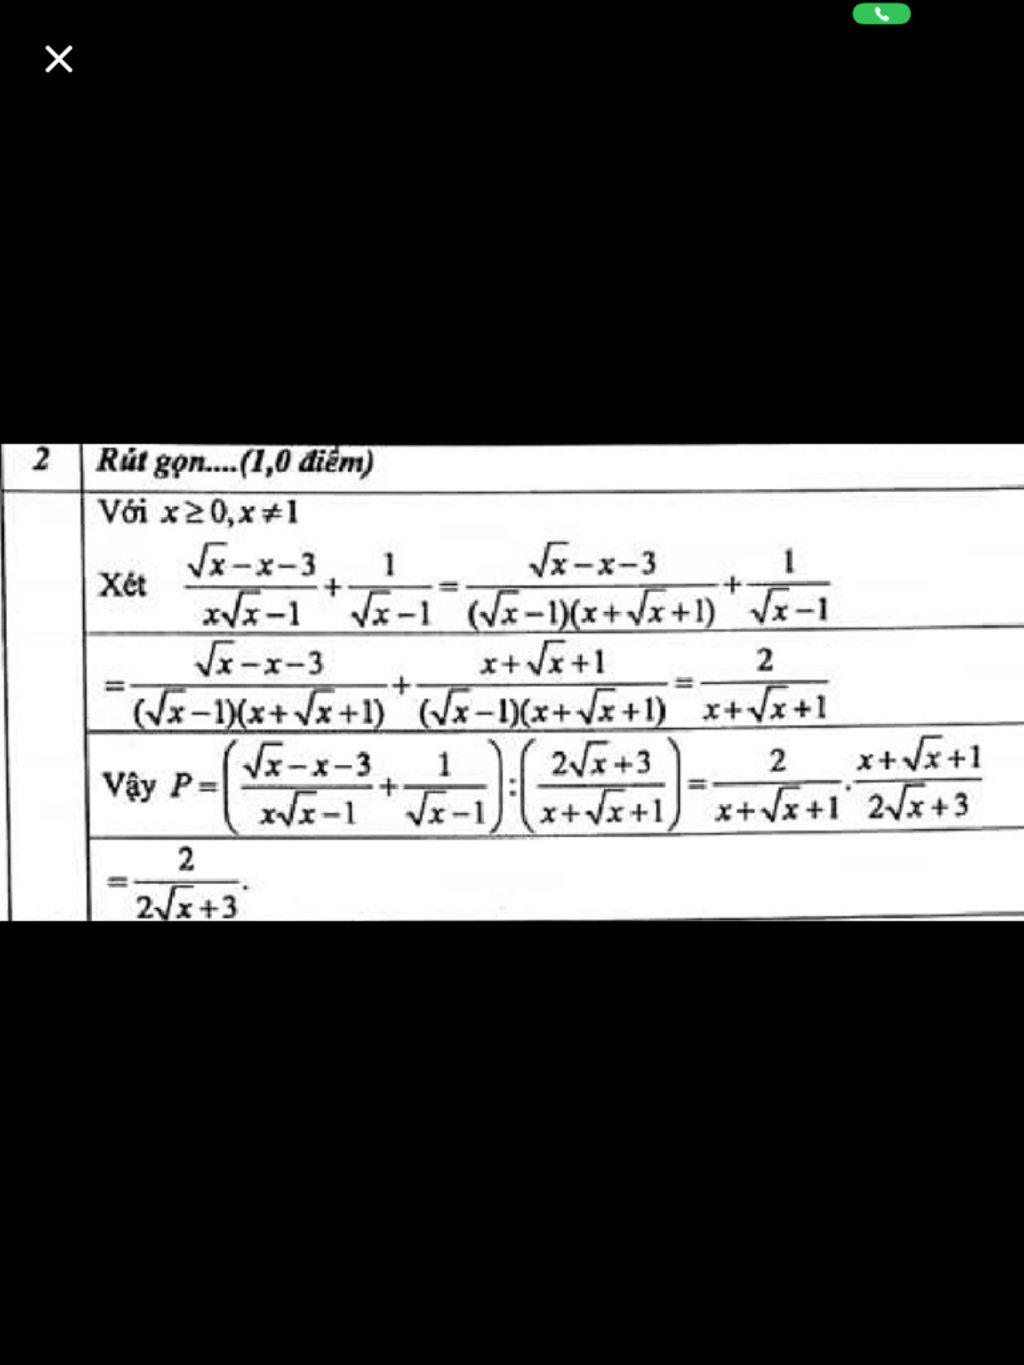 2 Rút gọn....(1,0 điểm)
Với x ≥ 0, x ≠ 1
Xét (√x − x − 3)/(x√x − 1) + 1/(√x − 1) = (√x − x − 3)/((√x − 1)(x + √x + 1)) + 1/(√x − 1)
= (√x − x − 3)/((√x − 1)(x + √x + 1)) + (x + √x + 1)/((√x − 1)(x + √x + 1)) = 2/(x + √x + 1)
Vậy P = ((√x − x − 3)/(x√x − 1) + 1/(√x − 1)) : ((2√x + 3)/(x + √x + 1)) = 2/(x + √x + 1) . (x + √x + 1)/(2√x + 3)
= 2/(2√x + 3).